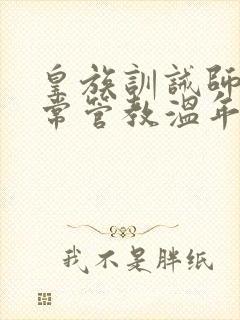 皇族訓誡師
常管教溫年
我不是胖纸